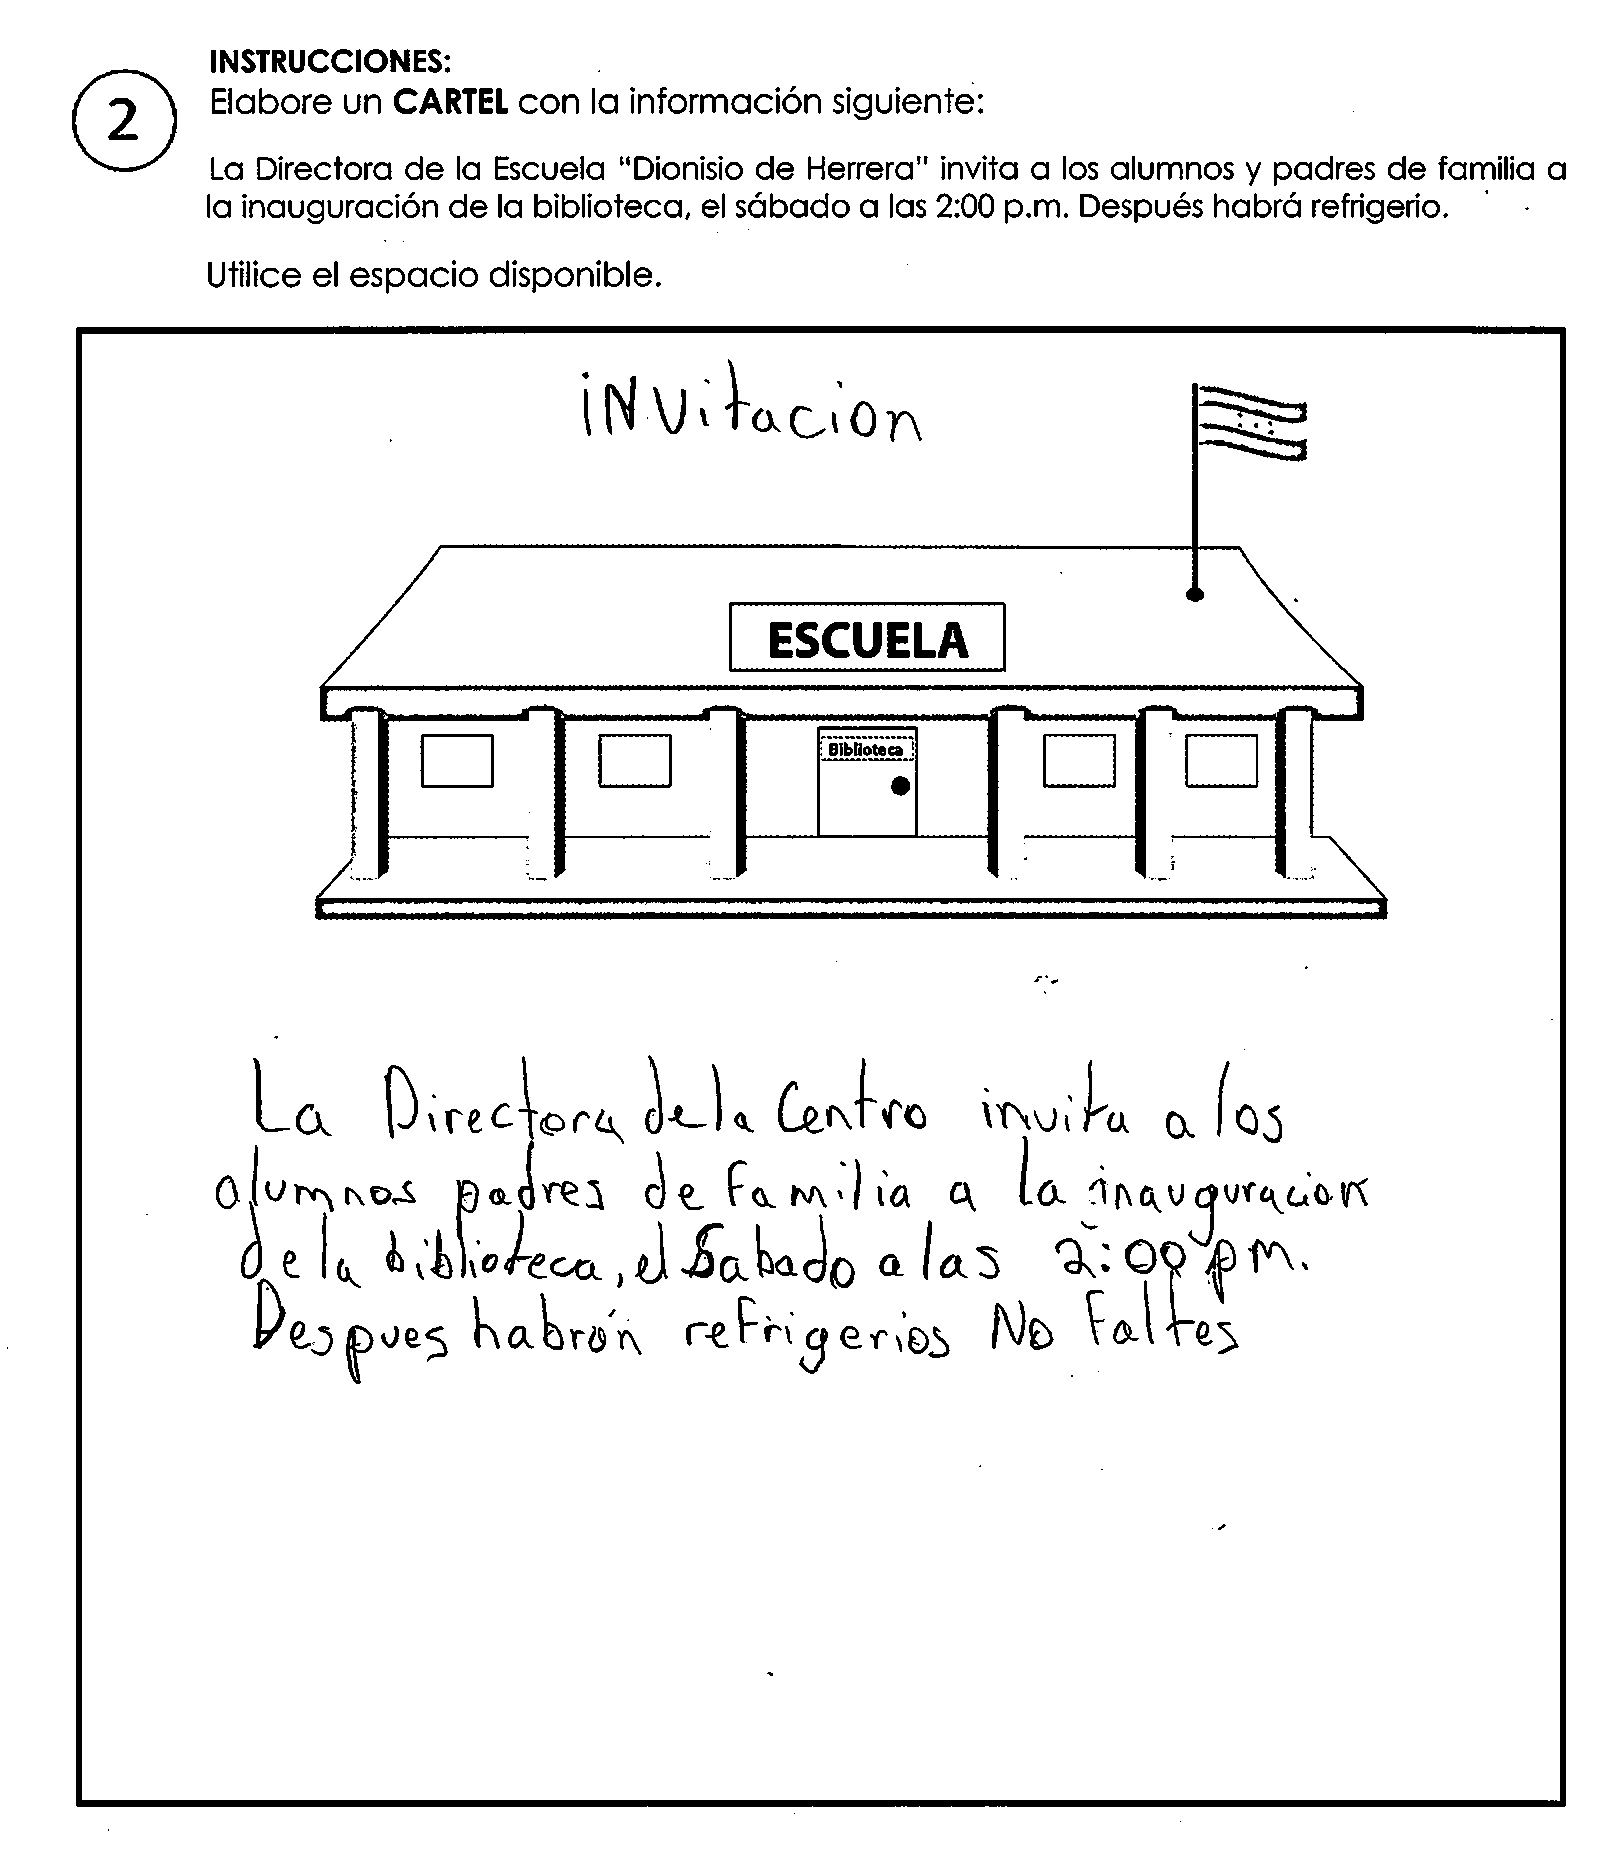 INSTRUCCIONES:
2
Elabore un CARTEL con la información siguiente:
La Directora de la Escuela "Dionisio de Herrera" invita a los alumnos y padres de familia a
la inauguración de la biblioteca, el sábado a las 2:00 p.m. Después habrá refrigerio.
Utilice el espacio disponible.
iNVitacion
ESCUELA
Biblioteca
La Directora de la Centro invita a los
alumnos padres de familia a la inauguracion
de la biblioteca, el Sabado a las 2:00 pm.
Despues habrón refrigerios No Faltes